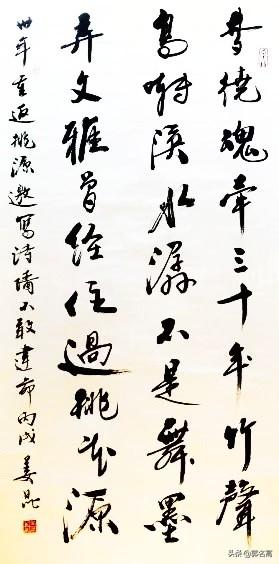 梦繞魂牵三十年竹聲
鳥溪水潺不是舞墨
弄文雅曾经住過桃花源
卅年重返桃源邀寫诗墙不敢違命丙戌姜昆
头条 @郭名高